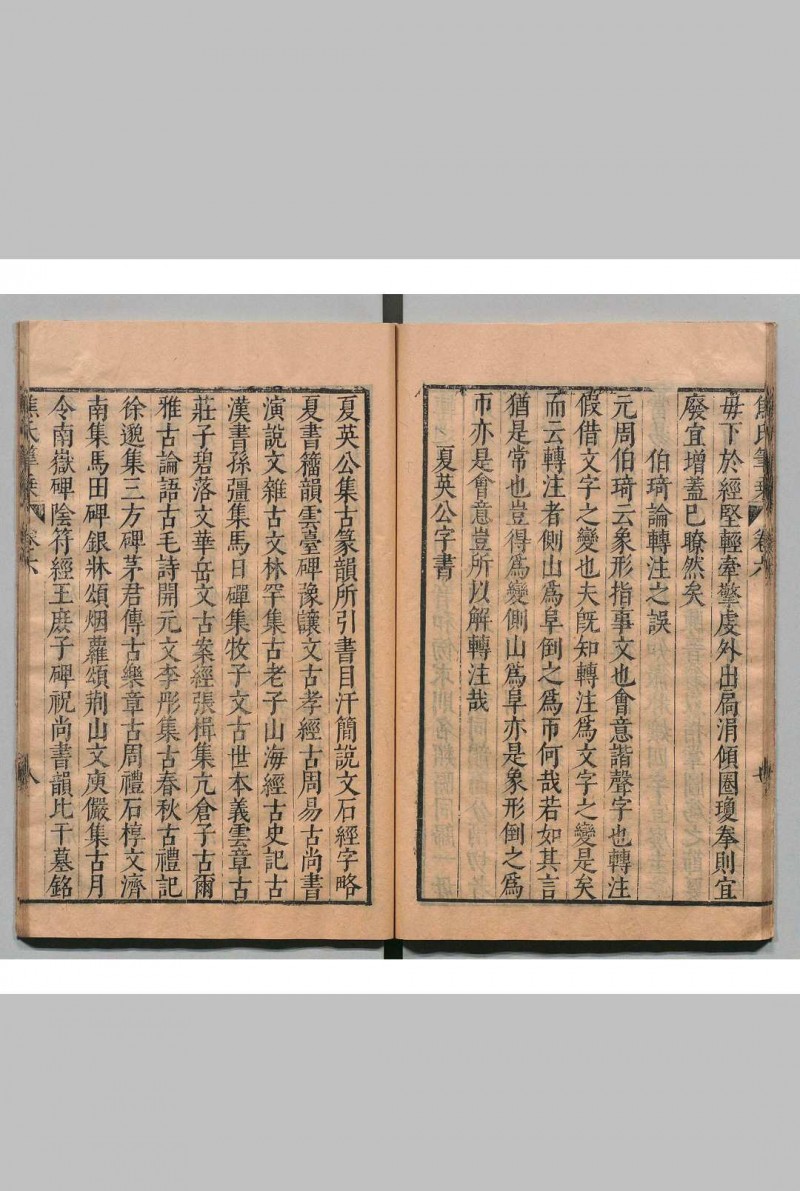 焦氏筆乗 卷六
毋下於經堅輕牽擎處外出扃涓傾圈瓊拳則宜
廢宜增蓋已瞭然矣
伯琦論轉注之誤
元周伯琦云象形指事文也會意諧聲字也轉注
假借文字之變也夫旣知轉注爲文字之變是矣
而云轉注者側山爲阜倒之爲帀何哉若如其言
猶是常也豈得爲變側山爲阜亦是象形倒之爲
帀亦是會意豈所以解轉注哉
夏英公字書
夏英公集古篆韻所引書目汗簡說文石經字略
夏書籀韻雲臺碑豫讓文古孝經古周易古尚書
演說文雜古文林罕集古老子山海經古史記古
漢書孫彊集馬日磾集牧子文古世本義雲章古
莊子碧落文華岳文古案經張楫集亢倉子古爾
雅古論語古毛詩開元文李彤集古春秋古禮記
徐邈集三方碑茅君傳古樂章古周禮石椁文濟
南集馬田碑銀牀頌烟蘿頌荆山文庾儼集古月
令南嶽碑陰符經王庶子碑祝尚書韻比干墓銘
焦氏筆乗 卷六 八